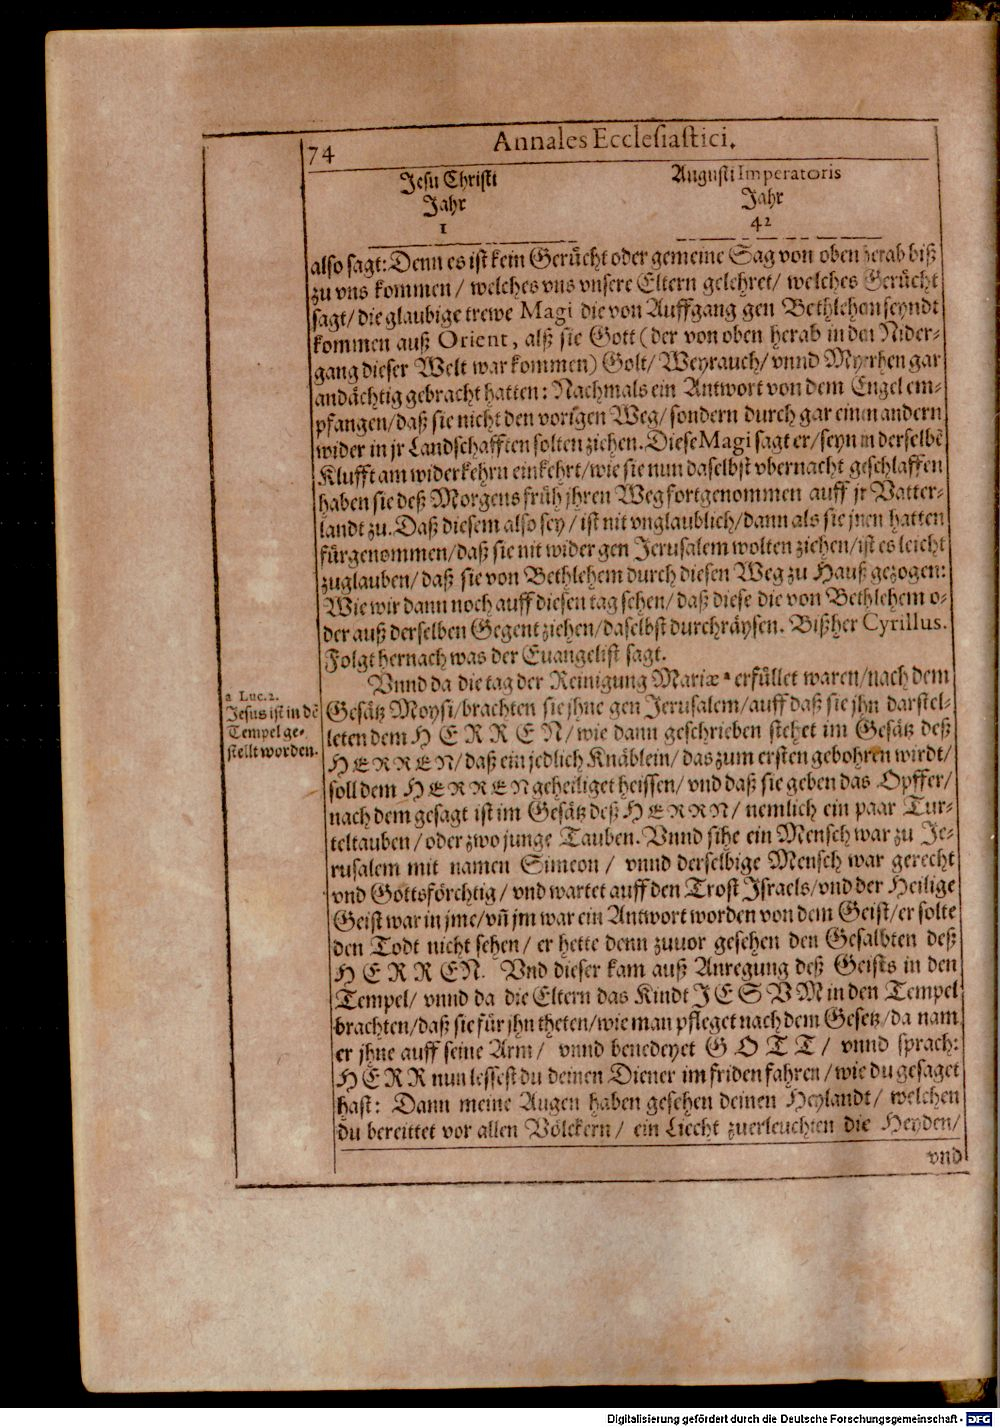 74
Annales Ecclesiastici.
Jesu Christi
Jahr
1
Augusti Imperatoris
Jahr
42
also sagt: Denn es ist kein Gerücht oder gemeine Sag von oben herab biß
zu vns kommen / welches vns vnsere Eltern gelehret / welches Gerücht
sagt / die glaubige trewe Magi die von Auffgang gen Bethlehem seyndt
kommen auß Orient, alß sie Gott (der von oben herab in den Nider-
gang dieser Welt war kommen) Golt / Weyrauch / vnnd Myrrhen gar
andächtig gebracht hatten: Nachmals ein Antwort von dem Engel em-
pfangen / daß sie nicht den vorigen Weg / sondern durch gar einen andern
wider in jr Landschafften solten ziehen. Diese Magi sagt er / seyn in derselbē
Klufft am widerkehrn einkehrt / wie sie nun daselbst vbernacht geschlaffen
haben sie deß Morgens früh jhren Weg fortgenommen auff jr Vatter-
landt zu. Daß diesem also sey / ist nit vnglaublich / dann als sie jnen hatten
fürgenommen / daß sie nit wider gen Jerusalem wolten ziehen / ist es leicht
zuglauben / daß sie von Bethlehem durch diesen Weg zu Hauß gezogen:
Wie wir dann noch auff diesen tag sehen / daß diese die von Bethlehem o-
der auß derselben Gegent ziehen / daselbst durchräysen. Bißher Cyrillus.
Folgt hernach was der Euangelist sagt.
Vnnd da die tag der Reinigung Mariæ a erfüllet waren / nach dem
Gesätz Moysi / brachten sie jhne gen Jerusalem / auff daß sie jhn darstel-
leten dem HERREN / wie dann geschrieben stehet im Gesätz deß
HERREN / daß ein jedlich Knäblein / das zum ersten gebohren wirdt /
soll dem HERREN geheiliget heissen / vnd daß sie geben das Opffer /
nach dem gesagt ist im Gesätz deß HERRN / nemlich ein paar Tur-
teltauben / oder zwo junge Tauben. Vnnd sihe ein Mensch war zu Je-
rusalem mit namen Simeon / vnnd derselbige Mensch war gerecht
vnd Gottsförchtig / vnd wartet auff den Trost Israels / vnd der Heilige
Geist war in jme / vñ jm war ein Antwort worden von dem Geist / er solte
den Todt nicht sehen / er hette denn zuuor gesehen den Gesalbten deß
HERREN. Vnd dieser kam auß Anregung deß Geists in den
Tempel / vnnd da die Eltern das Kindt JESVM in den Tempel
brachten / daß sie für jhn theten / wie man pfleget nach dem Gesetz / da nam
er jhne auff seine Arm / vnnd benedeyet GOTT / vnnd sprach:
HERR nun lessest du deinen Diener im friden fahren / wie du gesaget
hast: Dann meine Augen haben gesehen deinen Heylandt / welchen
du bereittet vor allen Völckern / ein Liecht zuerleuchten die Heyden /
vnd
a Luc. 2.
Jesus ist in dē
Tempel ge-
stellt worden.
Digitalisierung gefördert durch die Deutsche Forschungsgemeinschaft - DFG